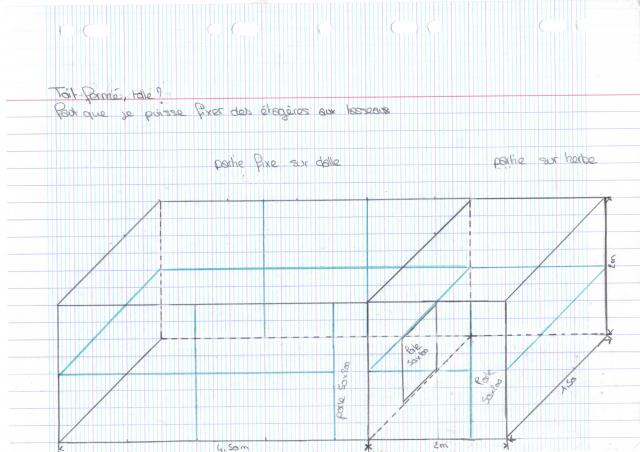 Toit fermé, tolle ?
Faut que je puisse fixer des étagères aux tasseaux
partie fixe sur dalle
partie sur herbe
2m
Porte 50x200
Porte
50x200
Porte
50x200
1.50
4.50m
2m